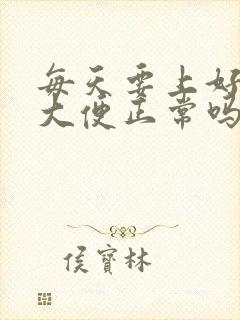 每天要上好
大便正常吗
侯寶林